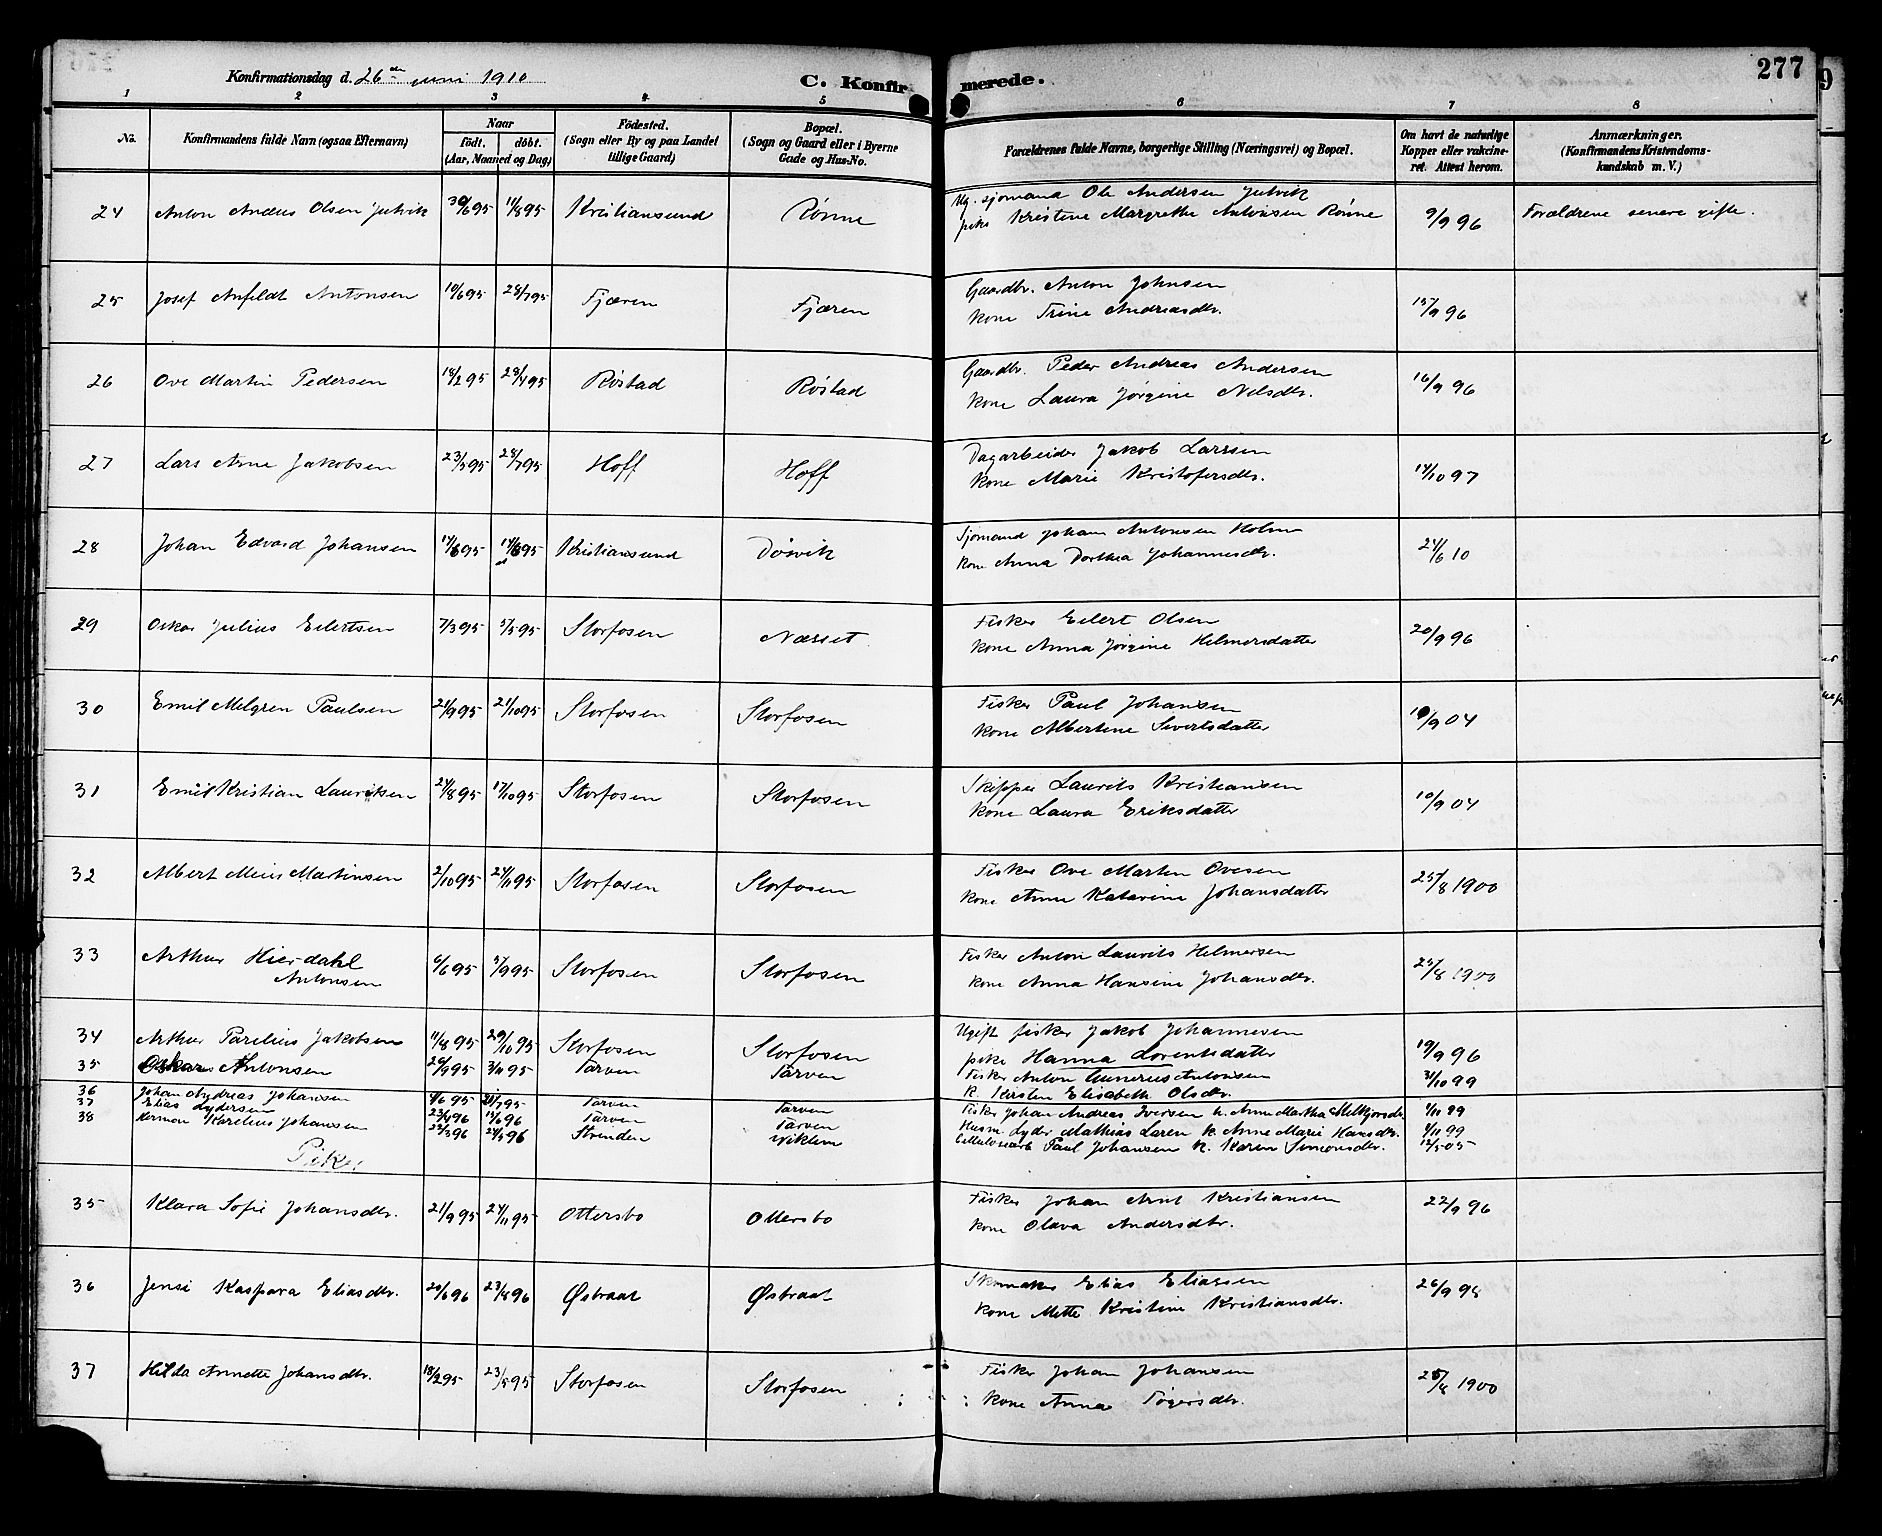 Konfirmationsdag d. 26de juni 1910
C. Konfirmerede.
277
1 2 3 4 5 6 7 8
No.
Konfirmandens fulde Navn (ogsaa Efternavn)
Naar
født. døbt.
(Aar, Maaned og Dag)
Fødested.
(Sogn eller By og paa Landet
tillige Gaard)
Bopæl.
(Sogn og Gaard eller i Byerne
Gade og Hus-No.
Forældrenes fulde Navne, borgerlige Stilling (Næringsvei) og Bopæl.
Om havt de naturlige
Kopper eller vakcine-
ret. Attest herom.
Anmærkninger.
(Konfirmandens Kristendoms-
kundskab m. V.)
24 Anton Olsen Jutvik 30/6 95 11/8 95 Kristiansund Rønne
Ug. sjømand Ole Andersen Jutvik
pike Kristine Margrethe Antonsen Rønne 9/9 96 Forældrene senere gifte.
25 Josef Anfeldt Antonsen 10/6 95 28/7 95 Fjæren Fjæren
Gaardbr. Anton Johnsen
kone Trine Andreasdtr. 15/9 96
26 Ove Martin Pedersen 18/2 95 28/4 95 Røstad Røstad
Gaardbr. Peder Andreas Andersen
kone Laura Jørgine Nilsdtr. 16/9 96
27 Lars Arne Jakobsen 23/5 95 28/7 95 Hoff Hoff
Dagarbeider Jakob Larssen
kone Marie Kristofersdtr. 14/10 97
28 Johan Edvard Johansen 14/6 95 Kristiansund Døsvik
Sjømand Johan Antonsen Holm
kone Anna Dorthea Johannesdtr. 24/6 10
29 Oskar Julius Eilertsen 7/3 95 5/5 95 Storfosen Næsset
Fisker Eilert Olsen
kone Anna Jørgine Helmersdatter 20/9 96
30 Emil Melgren Paulsen 21/9 95 21/10 95 Storfosen Storfosen
Fisker Paul Johansen
kone Albertine Sivertsdatter 10/9 04
31 Emil Kristian Lauritsen 24/8 95 17/10 95 Storfosen Storfosen
Skipper Laurits Kristiansen
kone Laura Eriksdatter 10/9 04
32 Albert Meier Martinsen 2/10 95 24/11 95 Storfosen Storfosen
Fisker Ove Martin Ovesen
kone Anna Katarina Johansdatter 25/8 1900
33 Arthur Hierdahl
Antonsen 6/6 95 5/9 95 Storfosen Storfosen
Fisker Anton Laurits Helmersen
kone Anna Hansine Johansdtr. 25/8 1900
34 Arthur Parelius Jakobsen 11/8 95 20/10 95 Storfosen Storfosen
Ugift fisker Jakob Johannesen
pike Hanna Lorentsdatter 19/9 96
35 Oskar Antonsen 26/9 95 3/11 95 Tarven Tarven
Fisker Anton Gunerius Antonsen
k. Kirsten Elisabeth Olsdtr. 31/10 99
36 Johan Andreas Johansen 4/6 95 21/7 95 Tarven Tarven
Fisker Johan Andreas Iversen k. Anne Martha 1/11 99
37 Elias Lydersen 23/4 96 Tarven Tarven
Husm. Lyder Mathias Laren k. Anne Marie Hansdtr. 1/11 99
38 Herman Karelius Johansen 22/3 96 24/5 96 Stranden Viklem
Paul Johansen k. Karen Simonsdtr. 12/5 05
Piker
35 Klara Sofie Johansdtr. 21/9 95 24/11 95 Ottersbo Ottersbo
Fisker Johan Arnt Kristiansen
kone Olava Andersdtr. 22/9 96
36 Jensi Kaspara Eliasdtr. 20/6 96 23/8 96 Østraat Østraat
Skomaker Elias Eliassen
kone Mette Kristine Kristiansdtr. 26/9 98
37 Hilda Annette Johansdtr. 18/2 95 23/5 95 Storfosen Storfosen
Fisker Johan Johansen
kone Anna Tøgersdtr. 25/8 1900